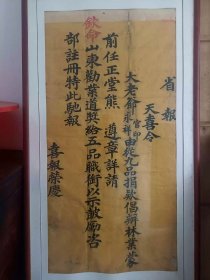 省報
天喜令
大老爺官印永祥由從九品捐款倡辦林業蒙
前任正堂熊 遵章詳請
欽命山東勸業道奨給五品職銜以示鼓勵咨
部註冊特此馳報
喜報榮慶